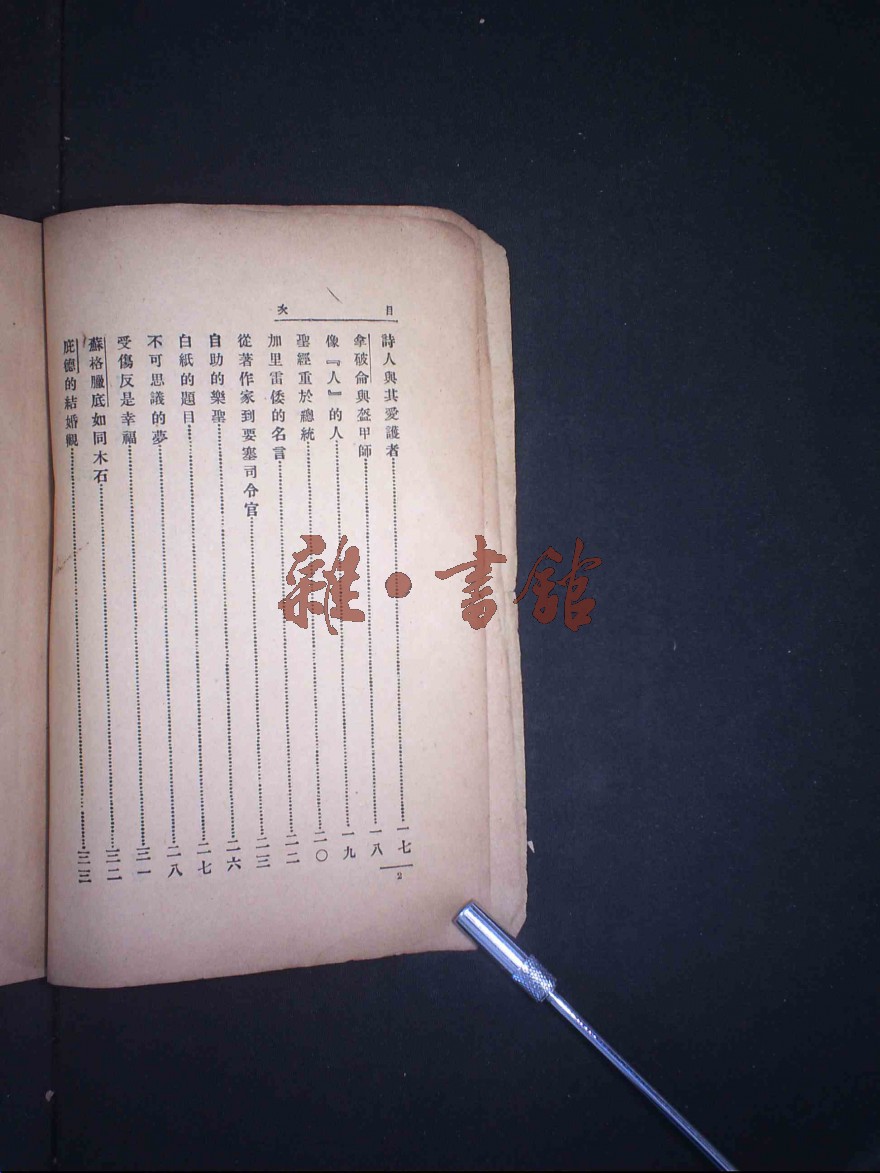 目次
詩人與其愛護者……一七
拿破侖與盔甲師……一八
像『人』的人……一九
聖經重於總統……二〇
加里雷倭的名言……二二
從著作家到要塞司令官……二三
自助的樂聖……二六
白紙的題目……二七
不可思議的夢……二八
受傷反是幸福……三一
蘇格臘底如同木石……三二
庇德的結婚觀……三三
2
雜·書館